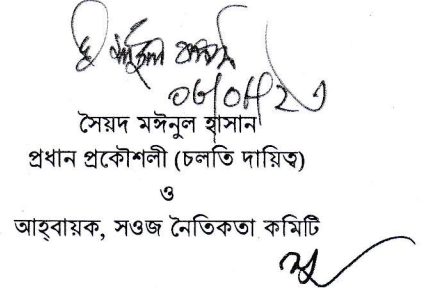 সৈয়দ মঈনুল হাসান
প্রধান প্রকৌশলী (চলতি দায়িত্ব)
ও
আহ্বায়ক, সওজ নৈতিকতা কমিটি